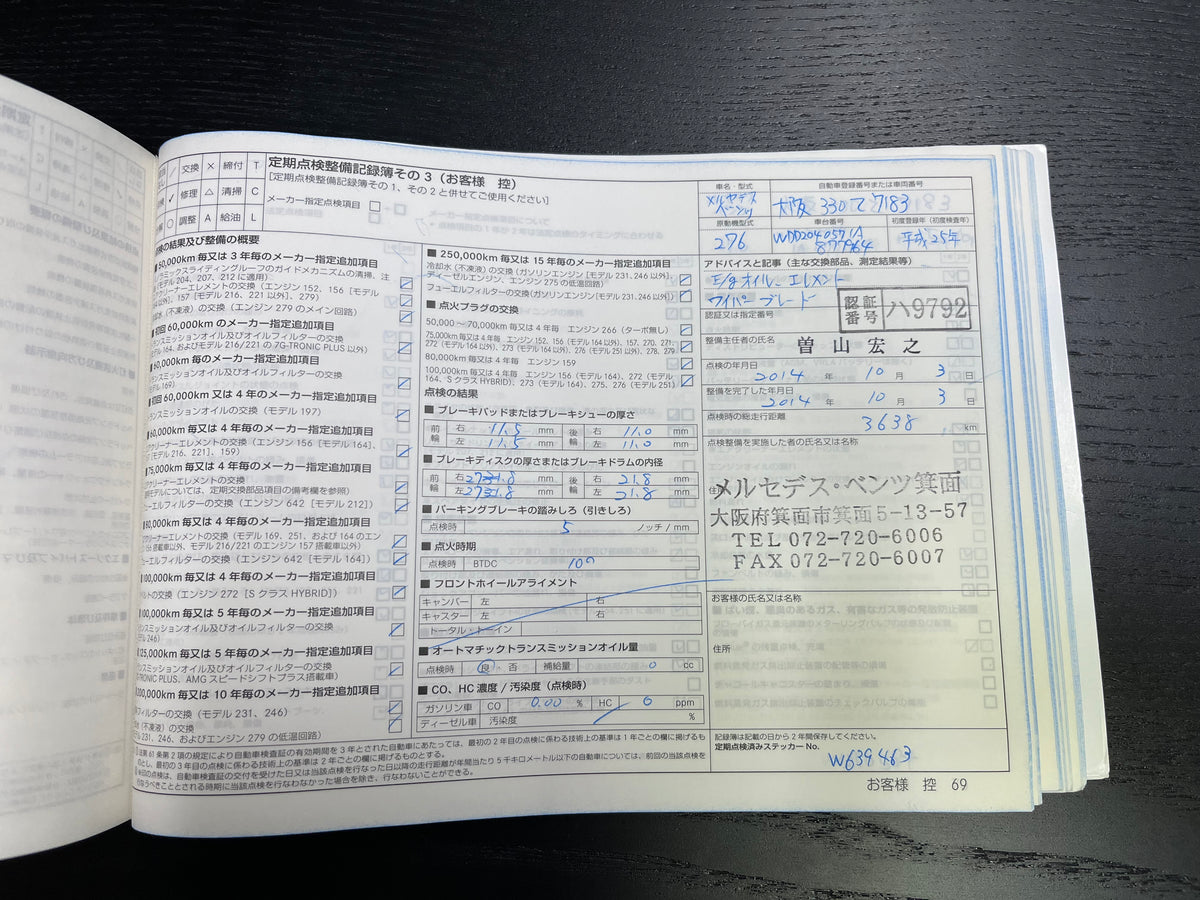 交換 × 締付 T
修理 △ 清掃 C
調整 A 給油 L
定期点検整備記録簿その3（お客様 控）
[定期点検整備記録簿その1、その2と併せてご使用ください]
メーカー指定点検項目
点検の結果及び整備の概要
50,000km 毎又は 3 年毎のメーカー指定追加項目
ミックスライディングルーフのガイドメカニズムの清掃、注
(モデル 204、207、212 に適用)
クリーナーエレメントの交換（エンジン 152、156 [モデル
以外]、157 [モデル 216、221 以外]、279）
(不凍液）の交換（エンジン 279 のメイン回路）
初回 60,000km のメーカー指定追加項目
ンスミッションオイル及びオイルフィルターの交換
164、およびモデル 216/221 の 7G-TRONIC PLUS 以外）
60,000km 毎のメーカー指定追加項目
ンスミッションオイル及びオイルフィルターの交換
169）
初回 60,000km 又は 4 年毎のメーカー指定追加項目
ランスミッションオイルの交換（モデル 197）
60,000km 毎又は 4 年毎のメーカー指定追加項目
クリーナーエレメントの交換（エンジン 156 [モデル 164]、
216、221]、159）
75,000km 毎又は 4 年毎のメーカー指定追加項目
クリーナーエレメントの交換
モデルについては、定期交換部品項目の備考欄を参照）
ューエルフィルターの交換（エンジン 642 [モデル 212]）
80,000km 毎又は 4 年毎のメーカー指定追加項目
クリーナーエレメントの交換（モデル 169、251、および 164 のエン
156 搭載車以外、モデル 216/221 のエンジン 157 搭載車以外）
ューエルフィルターの交換（エンジン 642 [モデル 164]）
100,000km 毎又は 4 年毎のメーカー指定追加項目
ルトの交換（エンジン 272 [S クラス HYBRID]）
100,000km 毎又は 5 年毎のメーカー指定追加項目
ンスミッションオイル及びオイルフィルターの交換
デル 246）
125,000km 毎又は 5 年毎のメーカー指定追加項目
ンスミッションオイル及びオイルフィルターの交換
TRONIC PLUS、AMG スピードシフトプラス搭載車）
200,000km 毎又は 10 年毎のメーカー指定追加項目
フィルターの交換（モデル 231、246）
(不凍液）の交換
231、246、およびエンジン 279 の低温回路）
■ 250,000km 毎又は 15 年毎のメーカー指定追加項目
冷却水（不凍液）の交換（ガソリンエンジン [モデル 231、246 以外]、
ディーゼルエンジン、エンジン 275 の低温回路）
フューエルフィルターの交換（ガソリンエンジン [モデル 231、246 以外]）
■ 点火プラグの交換
50,000 〜 70,000km 毎又は 4 年毎 エンジン 266（ターボ無し）
75,000km 毎又は 4 年毎 エンジン 152、156（モデル 164 以外）、157、270、271、
272（モデル 164 以外）、273（モデル 164 以外）、276（モデル 251 以外）、278、279
80,000km 毎又は 4 年毎 エンジン 159
100,000km 毎又は 4 年毎 エンジン 156（モデル 164）、272（モデル
164、S クラス HYBRID）、273（モデル 164）、275、276（モデル 251）
点検の結果
■ ブレーキパッドまたはブレーキシューの厚さ
前輪 右 11.5 mm 後輪 右 11.0 mm
左 11.5 mm 左 11.0 mm
■ ブレーキディスクの厚さまたはブレーキドラムの内径
前輪 右 31.8 mm 後輪 右 21.8 mm
左 31.8 mm 左 21.8 mm
■ パーキングブレーキの踏みしろ（引きしろ）
点検時 5 ノッチ / mm
■ 点火時期
点検時 BTDC 10°
■ フロントホイールアライメント
キャンバー 左 右
キャスター 左 右
トータル・トーイン
■ オートマチックトランスミッションオイル量
点検時 良・否 補給量 0 cc
■ CO、HC 濃度 / 汚染度（点検時）
ガソリン車 CO 0.00 % HC 0 ppm
ディーゼル車 汚染度 %
車名・型式
メルセデス
ベンツ
自動車登録番号または車両番号
大阪 330 て 7183
原動機型式
276
車台番号
WDD2040571A
877964
初度登録年（初度検査年）
平成25年
アドバイスと記事（主な交換部品、測定結果等）
E/gオイル、エレメント
ワイパーブレード
認証又は指定番号
認証番号 ハ9792
整備主任者の氏名
曽山宏之
点検の年月日
2014 年 10 月 3 日
整備を完了した年月日
2014 年 10 月 3 日
点検時の総走行距離
3638 km
点検整備を実施した者の氏名又は名称
メルセデス・ベンツ箕面
大阪府箕面市箕面5-13-57
TEL 072-720-6006
FAX 072-720-6007
お客様の氏名又は名称
住所
記録簿は記載の日から 2 年間保存してください。
定期点検済みステッカー No.
W639483
法第 61 条第 2 項の規定により自動車検査証の有効期間を 3 年とされた自動車にあたっては、最初の 2 年目の点検に係わる技術上の基準は 1 年ごとの欄に掲げるも
のとし、最初の 3 年目の点検に係わる技術上の基準は 2 年ごとの欄に掲げるものとする。
の点検は、自動車検査証の交付を受けた日又は当該点検を行なった日以降の走行距離が年間当たり 5 千キロメートル以下の自動車については、前回の当該点検を
行なうべきこととされる時期に当該点検を行なわなかった場合を除き、行なわないことができる。
お客様 控 69